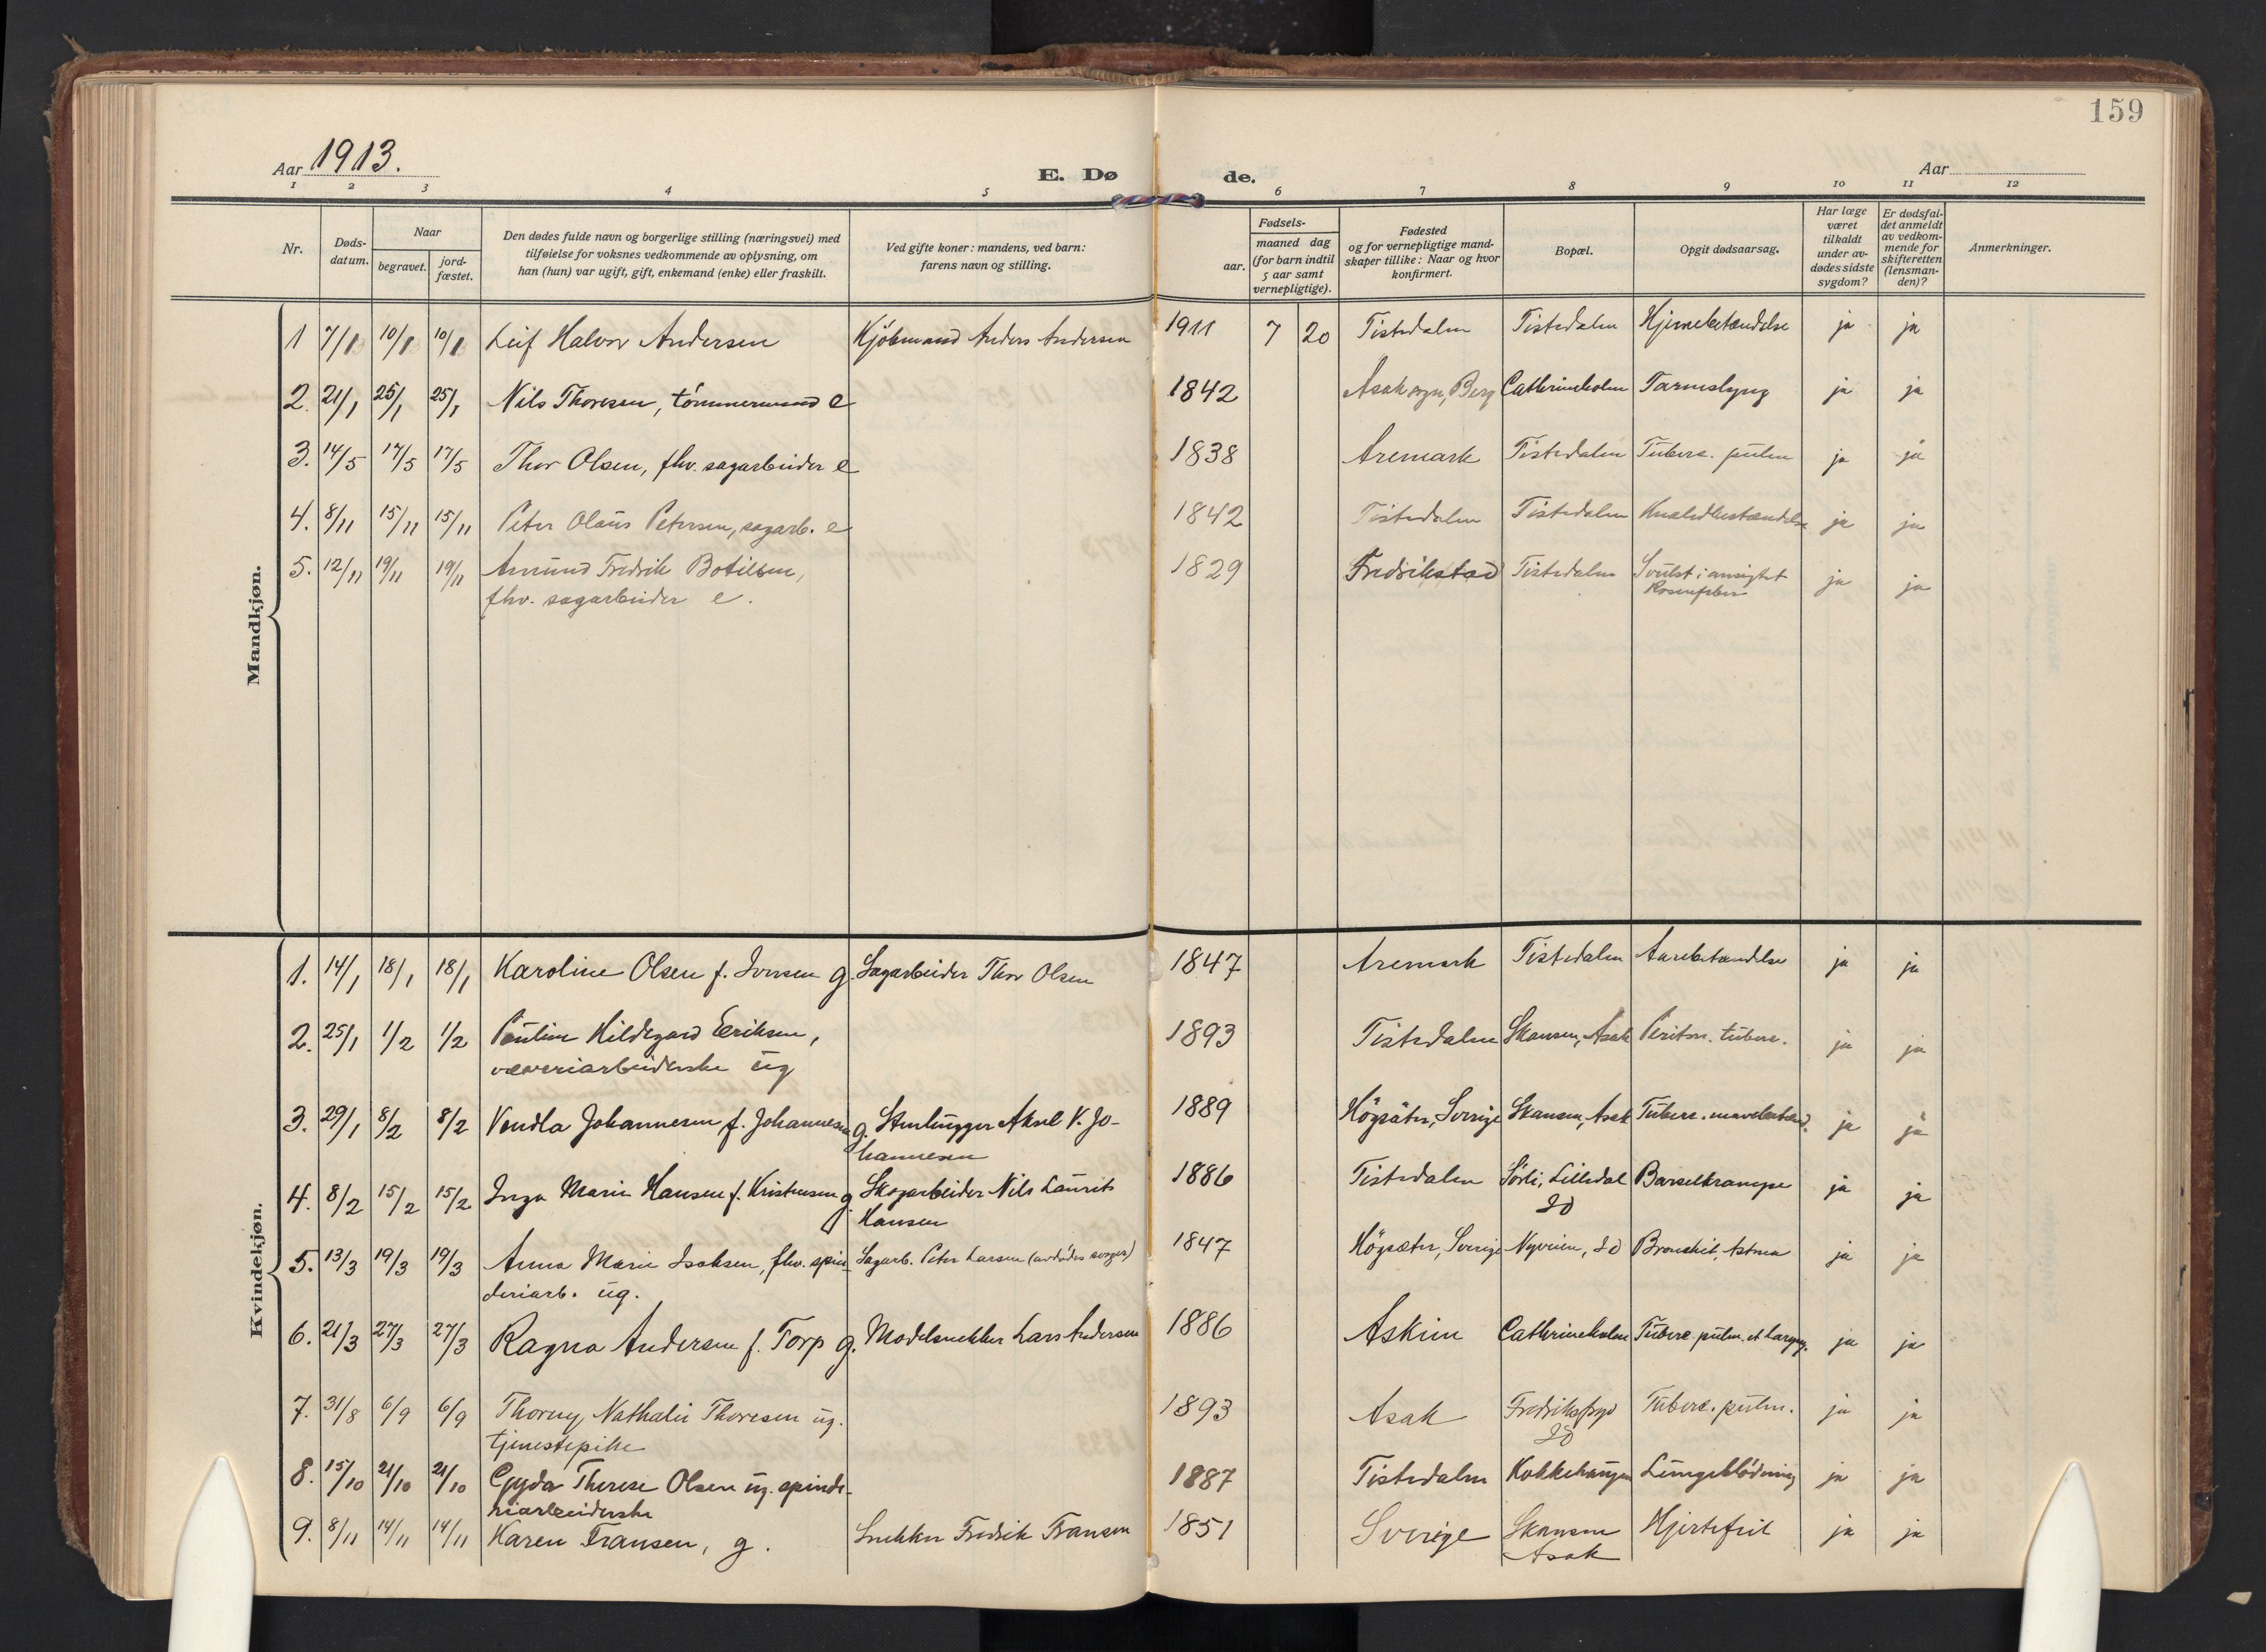 159
Aar 1913.
E. Dø de.
Aar
1 2 3 4 5 6 7 8 9 10 11 12
Nr.
Døds-
datum.
Naar
begravet.
jord-
fæstet.
Den dødes fulde navn og borgerlige stilling (næringsvei) med
tilføielse for voksnes vedkommende av oplysning, om
han (hun) var ugift, gift, enkemand (enke) eller fraskilt.
Ved gifte koner: mandens, ved barn:
farens navn og stilling.
Fødsels-
aar.
maaned dag
(for barn indtil
5 aar samt
vernepligtige).
Fødested
og for vernepligtige mand-
skaper tillike: Naar og hvor
konfirmert.
Bopæl.
Opgit dødsaarsag.
Har læge
været
tilkaldt
under av-
dødes sidste
sygdom?
Er dødsfal-
det anmeldt
av vedkom-
mende for
skifteretten
(lensman-
den)?
Anmerkninger.
Mandkjøn.
1 7/1 10/1 10/1 Leif Halvor Andersen Kjöbmand Anders Andersen 1911 7 20 Tistedalen Tistedalen Hjernebetændelse ja ja
2. 21/1 25/1 25/1 Nils Thoresen, tömmermand e 1842 Asak sogn, Berg Cathrineholm Tarmslyng ja ja
3. 14/5 17/5 17/5 Thor Olsen, fhv. sagarbeider e 1838 Aremark Tistedalen Tuberc. pulm ja ja
4. 8/11 15/11 15/11 Peter Olaus Petersen, sagarb. e 1842 Tistedalen Tistedalen ja ja
5. 12/11 19/11 19/11 Amund Fredrik Botilsen, 1829 Fredrikstad Tistedalen Svulst i ansigtet ja ja
fhv. sagarbeider e. Rosenfeber
Kvindekjøn.
1. 14/1 18/1 18/1 Karoline Olsen f. Iversen g. Sagarbeider Thor Olsen 1847 Aremark Tistedalen Aarebetændelse ja ja
2. 25/1 1/2 1/2 Pauline Hildegard Eriksen, 1893 Tistedalen Skansen, Asak Periton. tuberc. ja ja
væveriarbeiderske ug
3. 29/1 8/2 8/2 Vendla Johannesen f. Johannesen g. Stenhugger Aksel V. Jo- 1889 Högsäter, Sverige Skansen, Asak Tuberc. mavebetænd. ja ja
hannesen
4. 8/2 15/2 15/2 Inga Marie Hansen f. Kristensen g Skogarbeider Nils Laurits 1886 Tistedalen Sörli, Lilledal Barselkrampe ja ja
Hansen Id
5. 13/3 19/3 19/3 Anna Marie Isaksen, fhv. spin- Sagarb. Peter Larsen (avdödes svoger) 1847 Högsæter, Sverige Nyveien, Id Bronchit, Astma ja ja
deriarb. ug.
6. 21/3 27/3 27/3 Ragna Andersen f. Torp g. Modelsnekker Lars Andersen 1886 Askim Cathrineholm Tuberc. pulm. et laryng. ja ja
7. 31/8 6/9 6/9 Thorny Nathalie Thoresen ug. 1893 Asak Id Tuberc. pulm. ja ja
tjenestepike
8. 15/10 21/10 21/10 Gyda Therese Olsen ug. spinde- 1887 Tistedalen Kokkehaugen Lungeblödning ja ja
riarbeiderske
9. 8/11 14/11 14/11 Karen Fransen, g. Snekker Fredrik Fransen 1851 Sverige Skansen Hjertefeil ja ja
Asak